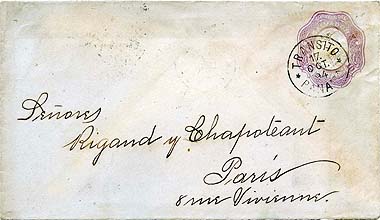 TRANSITO
17
OCT.
94
Señores
Rigaud y Chapoteaut
París
8 rue Vivienne.